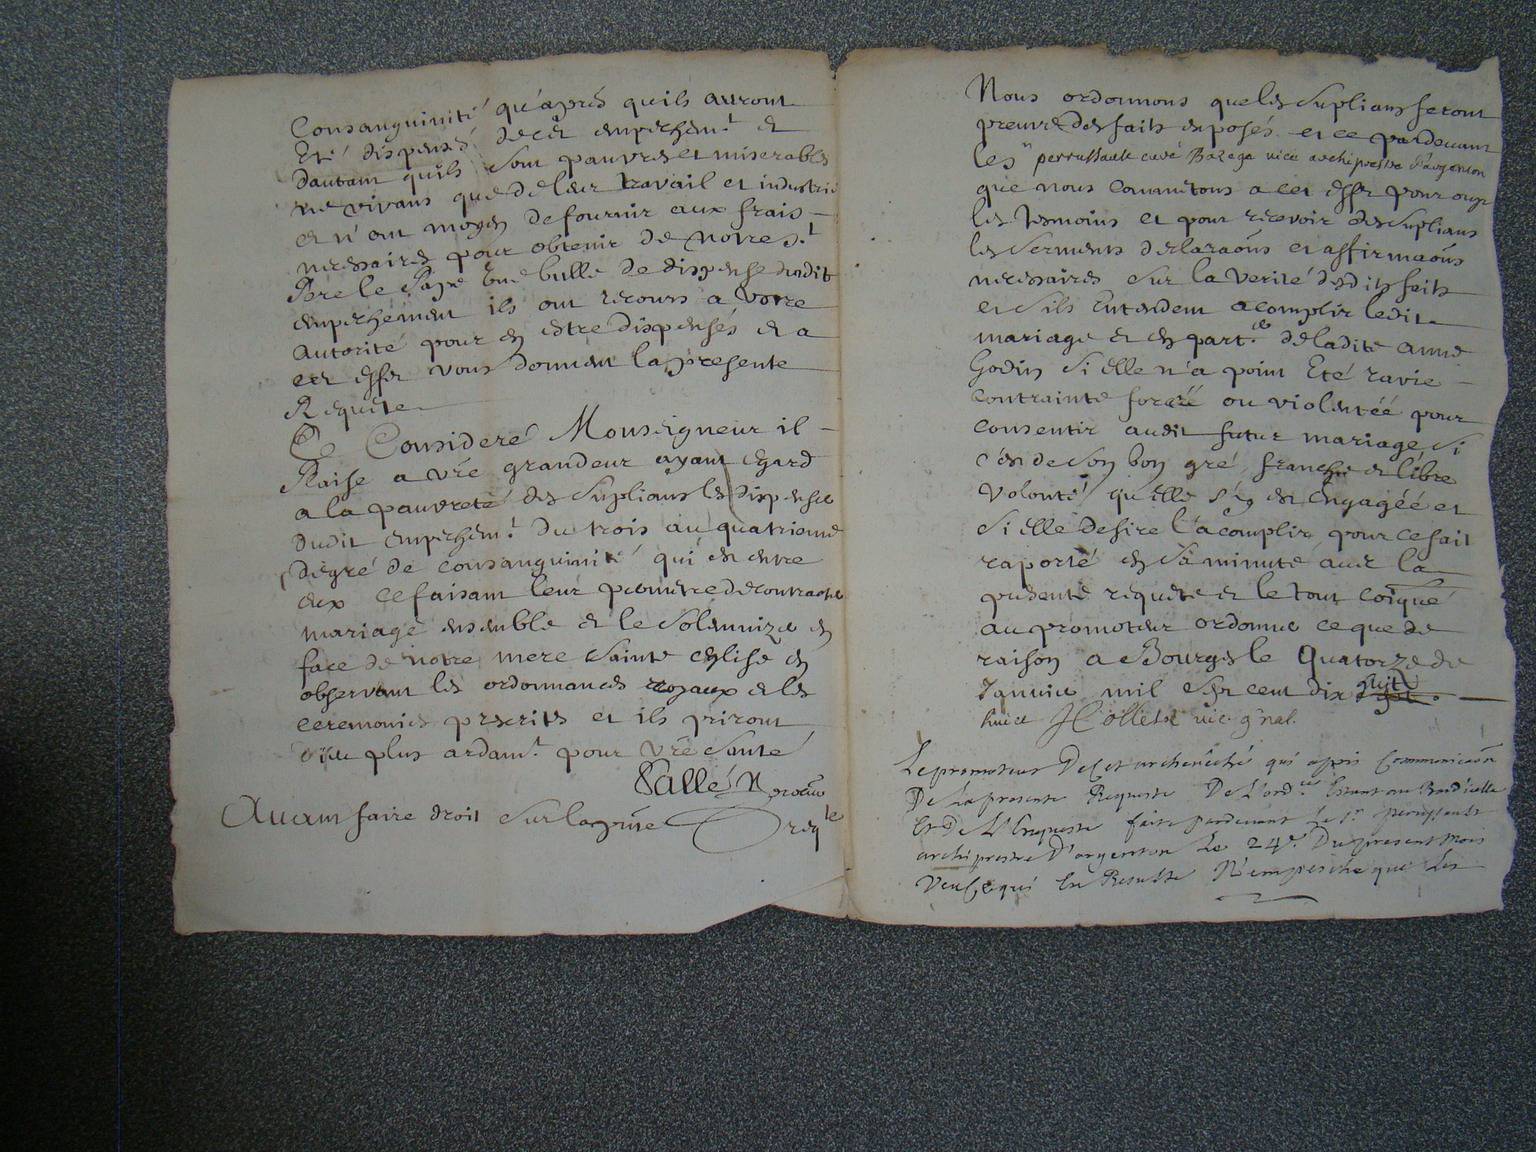 Consanguinité qu'aprés quils auront
Eté dispensé de cet empechem.t et
dautant quils sont pauvres et miserables
ne vivans que de leur travail et industrie
et n'ont moyen de fournir aux frais
necessaires pour obtenir de notre s.t
Pere le Pape une bulle de dispense dudit
empechement ils ont recours a votre
autorité pour en estre dispensés et a
cet effet vous donnent la presente
Requete
Ce Consideré Monseigneur il
Plaise a vre grandeur ayant egard
a la pauvreté des suplians les dispenser
dudit empechem.t du trois au quatrieme
degré de consanguinité qui est entre
eux ce faisant leur permetre de contracter
mariage ensemble et le solemnizer en
face de notre mere sainte eglise en
observant les ordonnances royaux et les
ceremonies prescrites et ils priront
Dieu plus ardam.t pour vre santé
Vallé
Avant faire droit sur la pnte req.te
Nous ordonnons que les suplians feront
preuve des faits exposés et ce pardevant
le s.r perrussault curé vice archiprestre d'argenton
que nous commetons a cet effet pour ouyr
les tesmoins et pour recevoir des suplians
les serments declaraons et affirmaons
necessaires sur la verité desdits faits
et sils entendent acomplir ledit
mariage et en part.er de ladite anne
Godin si elle n'a point Eté ravie
contrainte forcéé ou violentéé pour
consentir audit futur mariage si
c'est de son bon gré franche et libre
volonté qu'elle s'y est engagéé et
si elle desire l'acomplir pour ce fait
raporté en sa minute avec la
presente requete et le tout coïqué
au promoteur ordonner ce que de
raison a Bourges le Quatorze de
Janvier mil sept cent dix huit
huict Collet vic. g'nal.
Le promoteur De Cet archevêché qui apris Communicaon
De La presente Requeste De L'ord.ce Estant au Bas d'icelle
Et De L'Enqueste faite pardevant Le s.r perrussault
archiprestre D'argenton Le 24.e Du present Mois
Veu Ce qui En Resulte N'empesche que Les